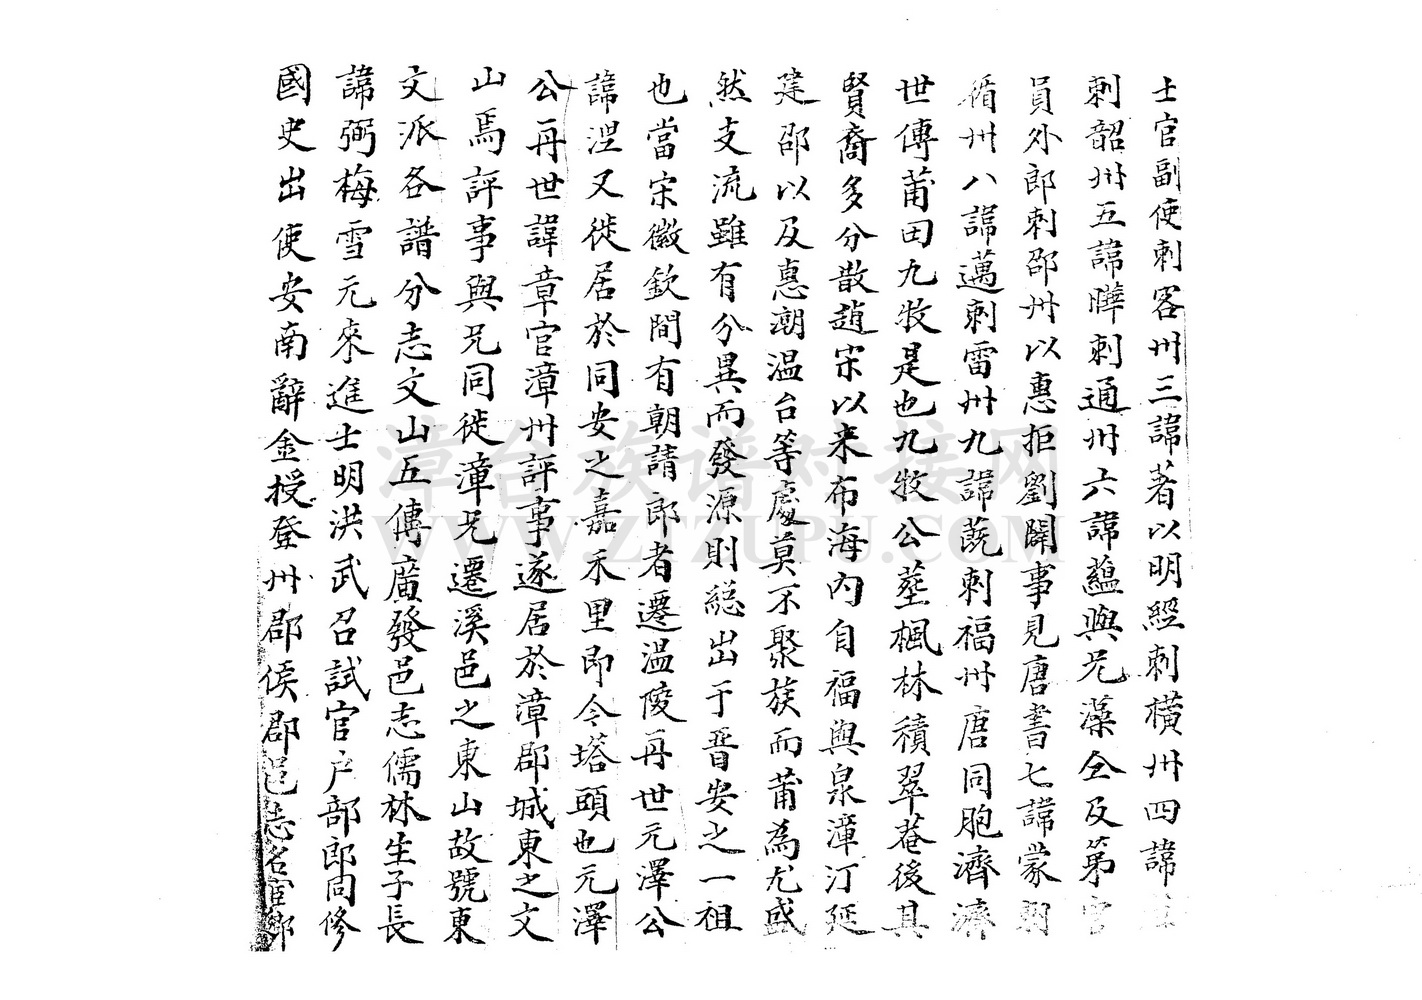 士官副使刺容州三諱著以明經刺橫州四諱
刺韶州五諱曄刺通州六諱蘊與兄藻仝及第官
員外郎刺邵州以惠拒劉闢事見唐書七諱蒙刺
循州八諱邁刺雷州九諱蔇刺福州唐同胞濟濟
世傳莆田九牧是也九牧公塟楓林積翠菴後其
賢裔多分散趙宋以来布海內自福興泉漳汀延
建邵以及惠潮温台等處莫不聚族而莆為尤盛
然支流雖有分異而發源則縂出于晉安之一祖
也當宋徽欽間有朝請郎者遷温陵再世元澤公
諱涅又徙居於同安之嘉禾里即今塔頭也元澤
公再世諱章官漳州評事遂居於漳郡城東之文
山焉評事與兄同徙漳兄遷溪邑之東山故號東
文派各譜分志文山五傳廣發邑志儒林生子長
諱弼梅雪元來進士明洪武召試官户部郎同修
國史出使安南辭金授登州郡侯郡邑志名宦鄉
漳台族谱对接网
WWW.ZTZUPU.COM